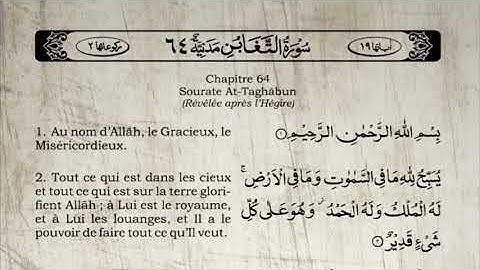 اٰیاتها ١٩ سُوْرَةُ التَّغَابُنِ مَدَنِیَّةٌ ٦٤ رکوعاتها ٢
Chapitre 64
Sourate At-Taghābun
(Révélée après l'Hégire)
1. Au nom d'Allāh, le Gracieux, le
Miséricordieux.
بِسْمِ اللّٰهِ الرَّحْمٰنِ الرَّحِيْمِ ١
2. Tout ce qui est dans les cieux
et tout ce qui est sur la terre glori-
fient Allāh ; à Lui est le royaume,
et à Lui les louanges, et Il a le
pouvoir de faire tout ce qu'Il veut.
يُسَبِّحُ لِلّٰهِ مَا فِي السَّمٰوٰتِ وَمَا فِي الْاَرْضِ ۚ
لَهُ الْمُلْكُ وَلَهُ الْحَمْدُ ۫ وَهُوَ عَلٰى كُلِّ
شَيْءٍ قَدِيْرٌ ٢